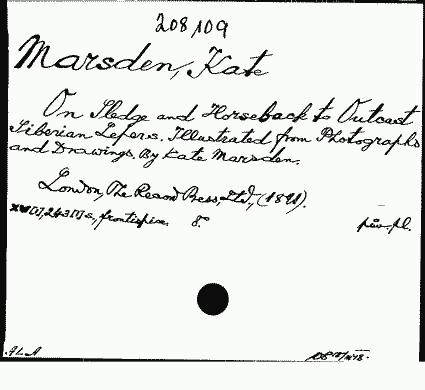 208109
Marsden, Kate
On Sledge and Horseback to Outcast
Siberian Lepers. Illustrated from Photographs
and Drawings. By Kate Marsden.
London, The Record Press, Ltd., (1891).
243 frontispice. 8°
pl.
A L A